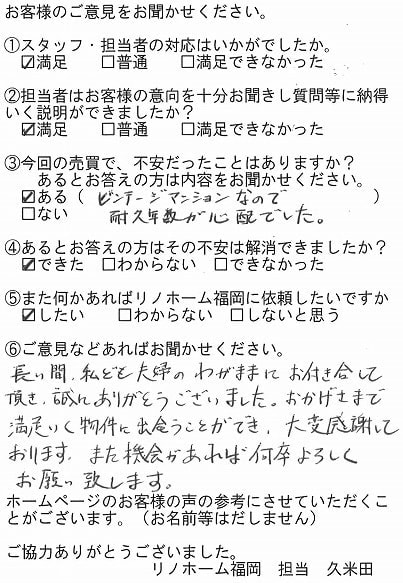 お客様のご意見をお聞かせください。
①スタッフ・担当者の対応はいかがでしたか。
☑満足 □普通 □満足できなかった
②担当者はお客様の意向を十分お聞きし質問等に納得
いく説明ができましたか？
☑満足 □普通 □満足できなかった
③今回の売買で、不安だったことはありますか？
あるとお答えの方は内容をお聞かせください。
☑ある（ ビンテージマンションなので ）
□ない 耐久年数が心配でした。
④あるとお答えの方はその不安は解消できましたか？
☑できた □わからない □できなかった
⑤また何かあればリノホーム福岡に依頼したいですか
☑したい □わからない □しないと思う
⑥ご意見などあればお聞かせください。
長い間、私ども夫婦のわがままにお付き合して
頂き、誠にありがとうございました。おかげさまで
満足いく物件に出会うことができ、大変感謝して
おります。また機会があれば何卒よろしく
お願い致します。
ホームページのお客様の声の参考にさせていただくこ
とがございます。（お名前等はだしません）
ご協力ありがとうございました。
リノホーム福岡 担当 久米田